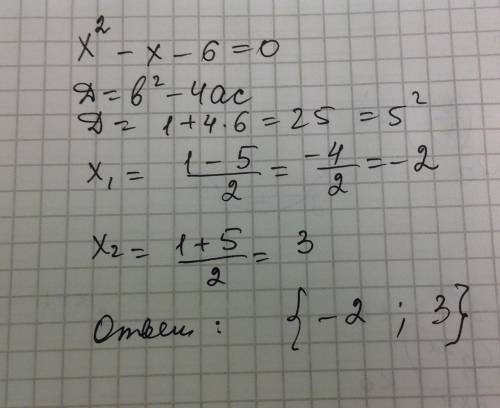 x² - x - 6 = 0
D = b² - 4ac
D = 1 + 4 · 6 = 25 = 5²
x₁ = (1 - 5)/2 = -4/2 = -2
x₂ = (1 + 5)/2 = 3
Ответ: {-2 ; 3}